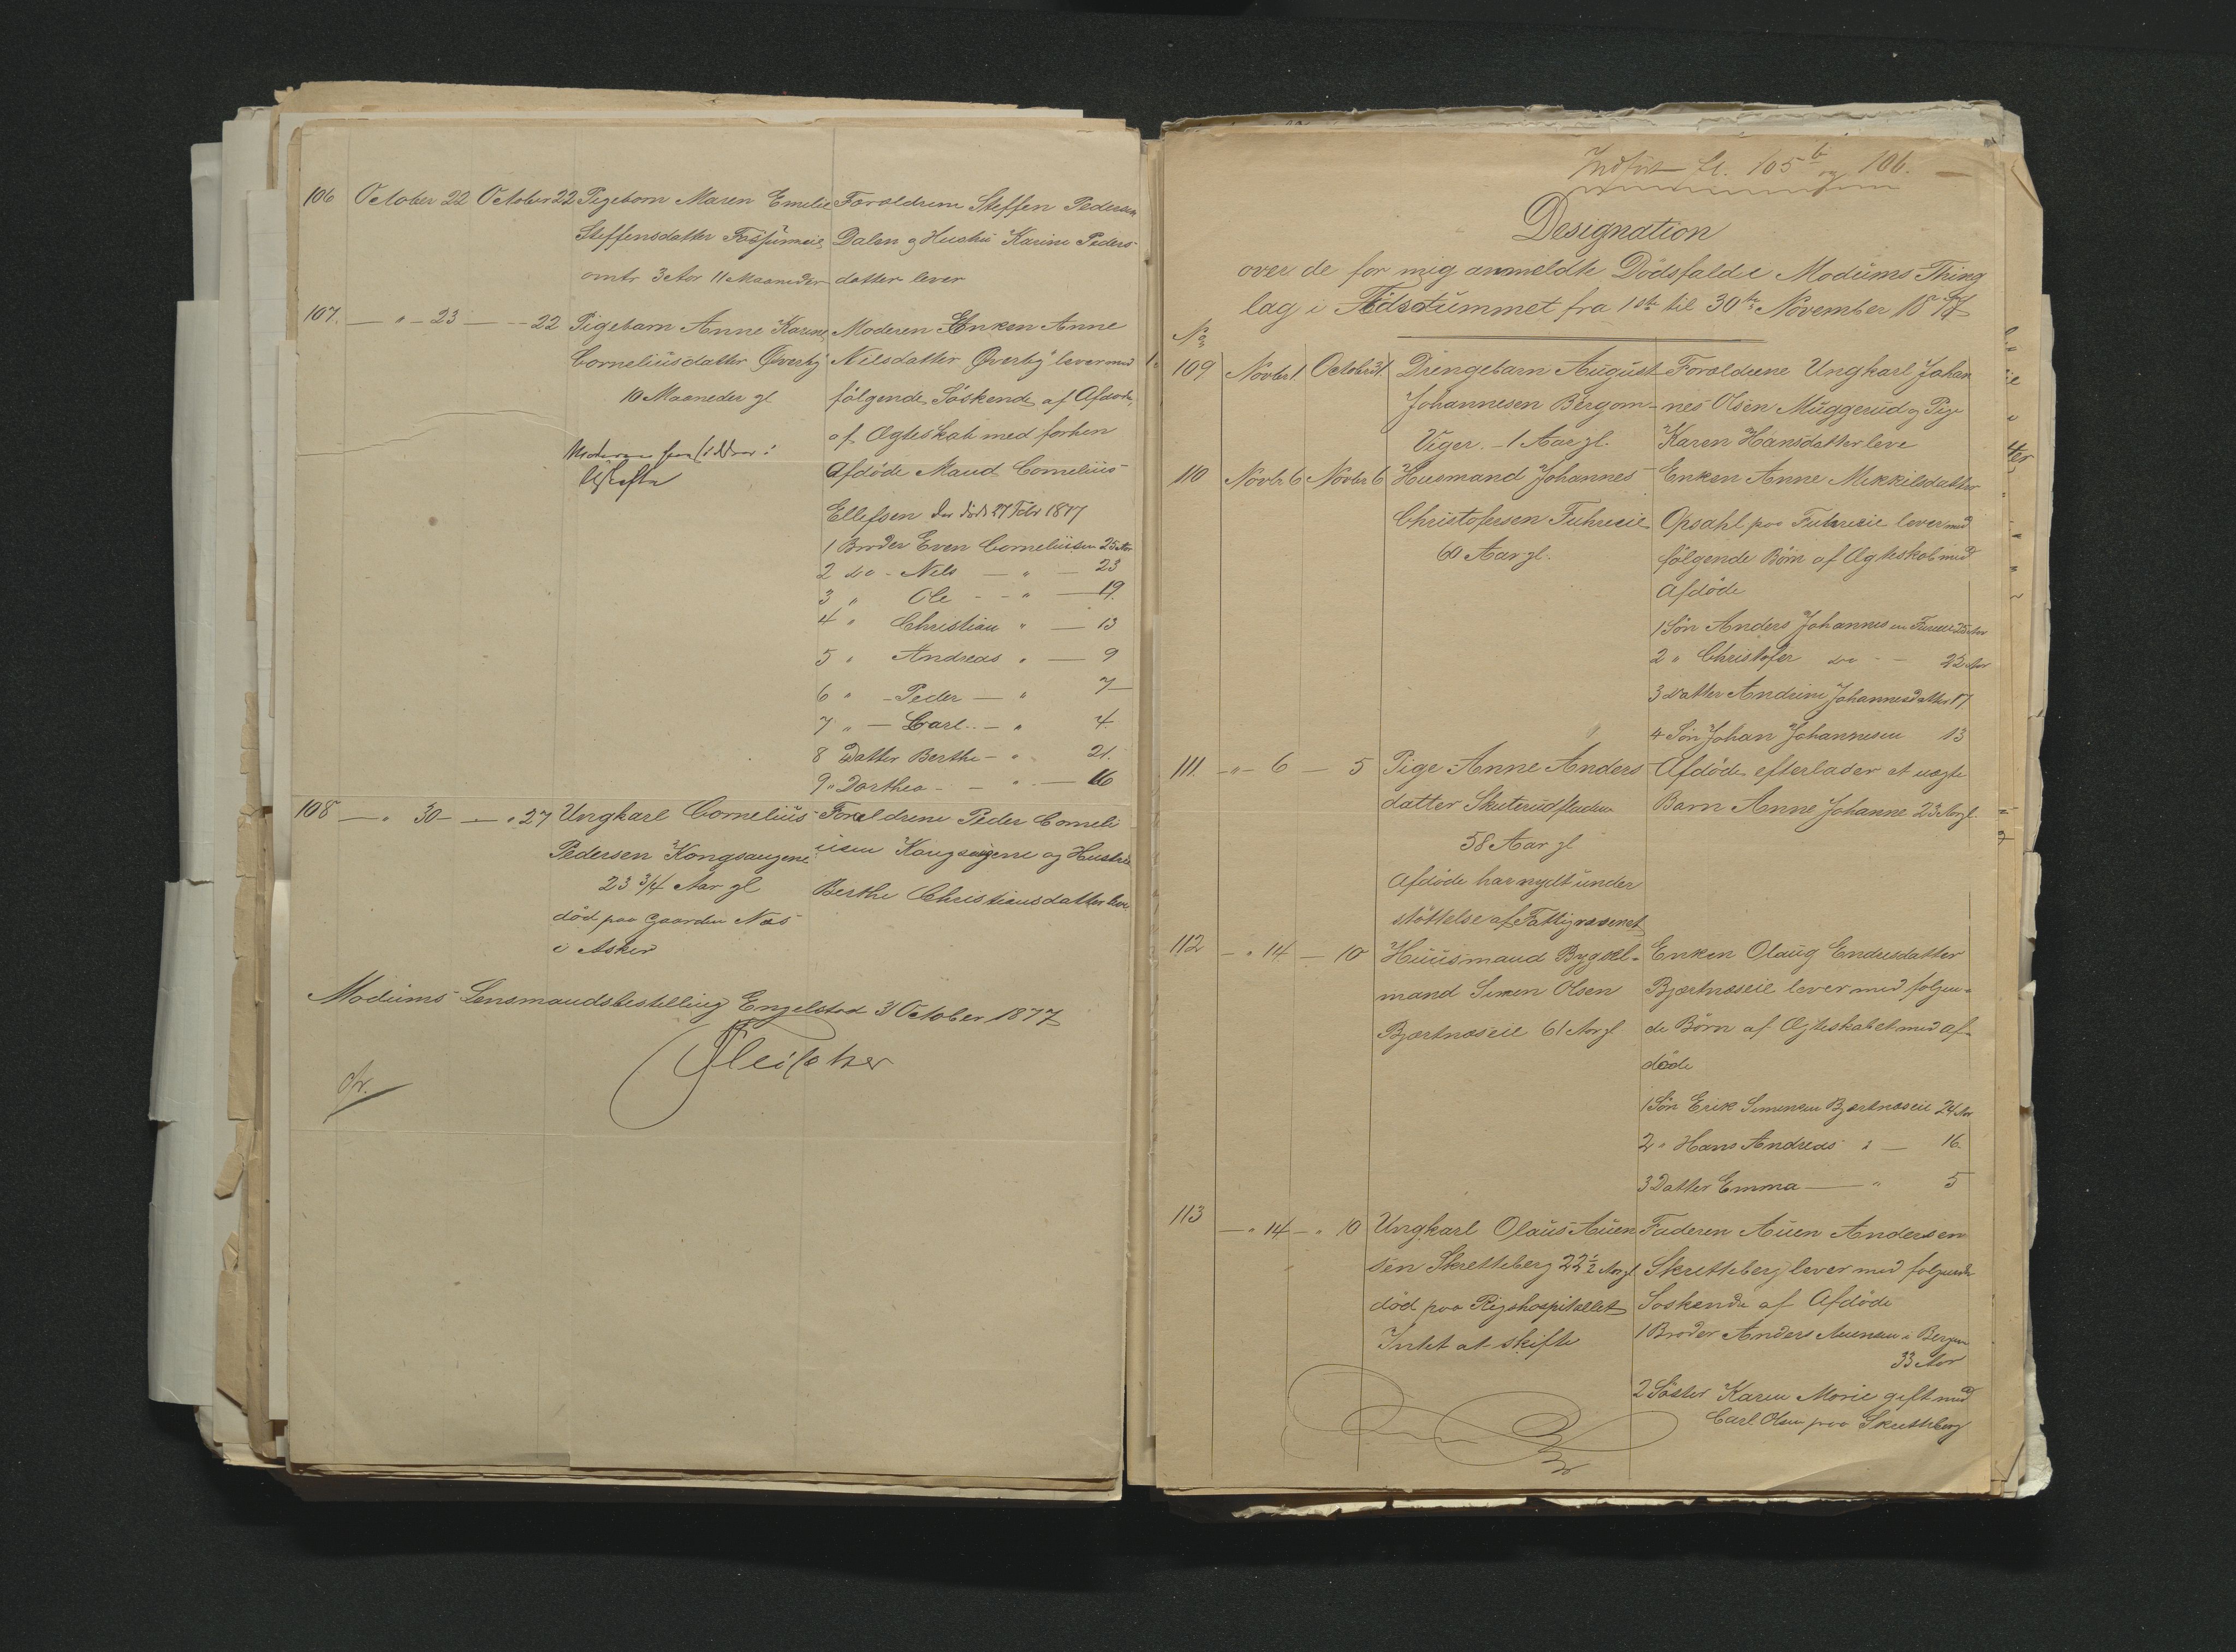 106 October 22 October 22 Pigebarn Maren Emilie Forældrene Steffen Pedersen
Steffensdatter Dalen og Hustru Karine Peders
omtr 3 Aar 11 Maaneder datter lever
107. — " — 23 — — 22 Pigebarn Anne Karine Moderen Enken Anne
Corneliusdatter Øverby Nilsdatter Øverby lever med
10 Maaneder gl følgende Søskende af Afdøde,
af Ægteskab med forhen
afdøde Mand Cornelius
Ellefsen der døde 27 Febr 1877
1 Broder Even Corneliusen 25 Aar
2 do - Nils — " — 23
3 " Ole - - " — 19.
4 " Christian " — 13
5 " Andreas " — 9
6 " - Peder — " 7
7 " — Carl - — " 4
8 Datter Berthe - " 21.
9 " Dorthea - - " — 16
108 — " 30 — — " 27 Ungkarl Cornelius Forældrene Peder Corneli
Pedersen Kongsaugene usen Kongsaugene og Hustru
23 3/4 Aar gl Berthe Christiansdatter leve
død paa Gaarden Næs
i Asker
Modums Lensmandsbestilling Engelstad 31 October 1877
Fleischer
Indført fl. 105 b og 106. —
Designation
over de for mig anmeldte Dødsfald i Modums Thing
lag i Tidsrummet fra 1ste til 30te November 1877
No
109 Novbr 1 October 31. Drengebarn August Forældrene Ungkarl Johan
Johannesen Bergom- nes Olsen Muggerud og Pige
Viger. - 1 Aar gl. Karen Hansdatter leve
110 Novbr 6 Novbr 6 Husmand Johannes Enken Anne Mikkilsdatter
Christofersen Fuhreeie Opsahl paa Fuhreeie lever med
60 Aar gl. følgende Børn af Ægteskab med
Afdøde
1 Søn Anders Johannesen Fureeie 25 Aar
2 " Christofer do - — 22 Aar
3 Datter Andrine Johannesdatter 17
4 Søn Johan Johannesen 13
111. — " — 6 — 5 Pige Anne Anders Afdøde efterlader et uægte
datter Skuterudfladen Barn Anne Johanne 23 Aar gl.
58 Aar gl
Afdøde har nydt under
støttelse af Fattigvæsenet
112 — " 14 — 10 Huusmand Bygsel- Enken Olaug Endresdatter
mand Simen Olsen Bjertnæseie lever med følgen-
Bjertnæseie 61 Aar gl de Børn af Ægteskabet med af-
døde
1 Søn Erik Simensen Bjertnæseie 24 Aar
2 " Hans Andreas " — 16
3 Datter Emma — " 5
113 — " 14 — " 10 Ungkarl Olaus Auen Faderen Auen Andersen
sen Skretteberg 22 1/2 Aar gl Skretteberg lever med følgende
død paa Rigshospitallet Søskende af Afdøde
Intet at skifte 1 Broder Anders Auensen i Bergen
33 Aar
2 Søster Karen Marie gift med
Carl Olsen paa Skretteberg